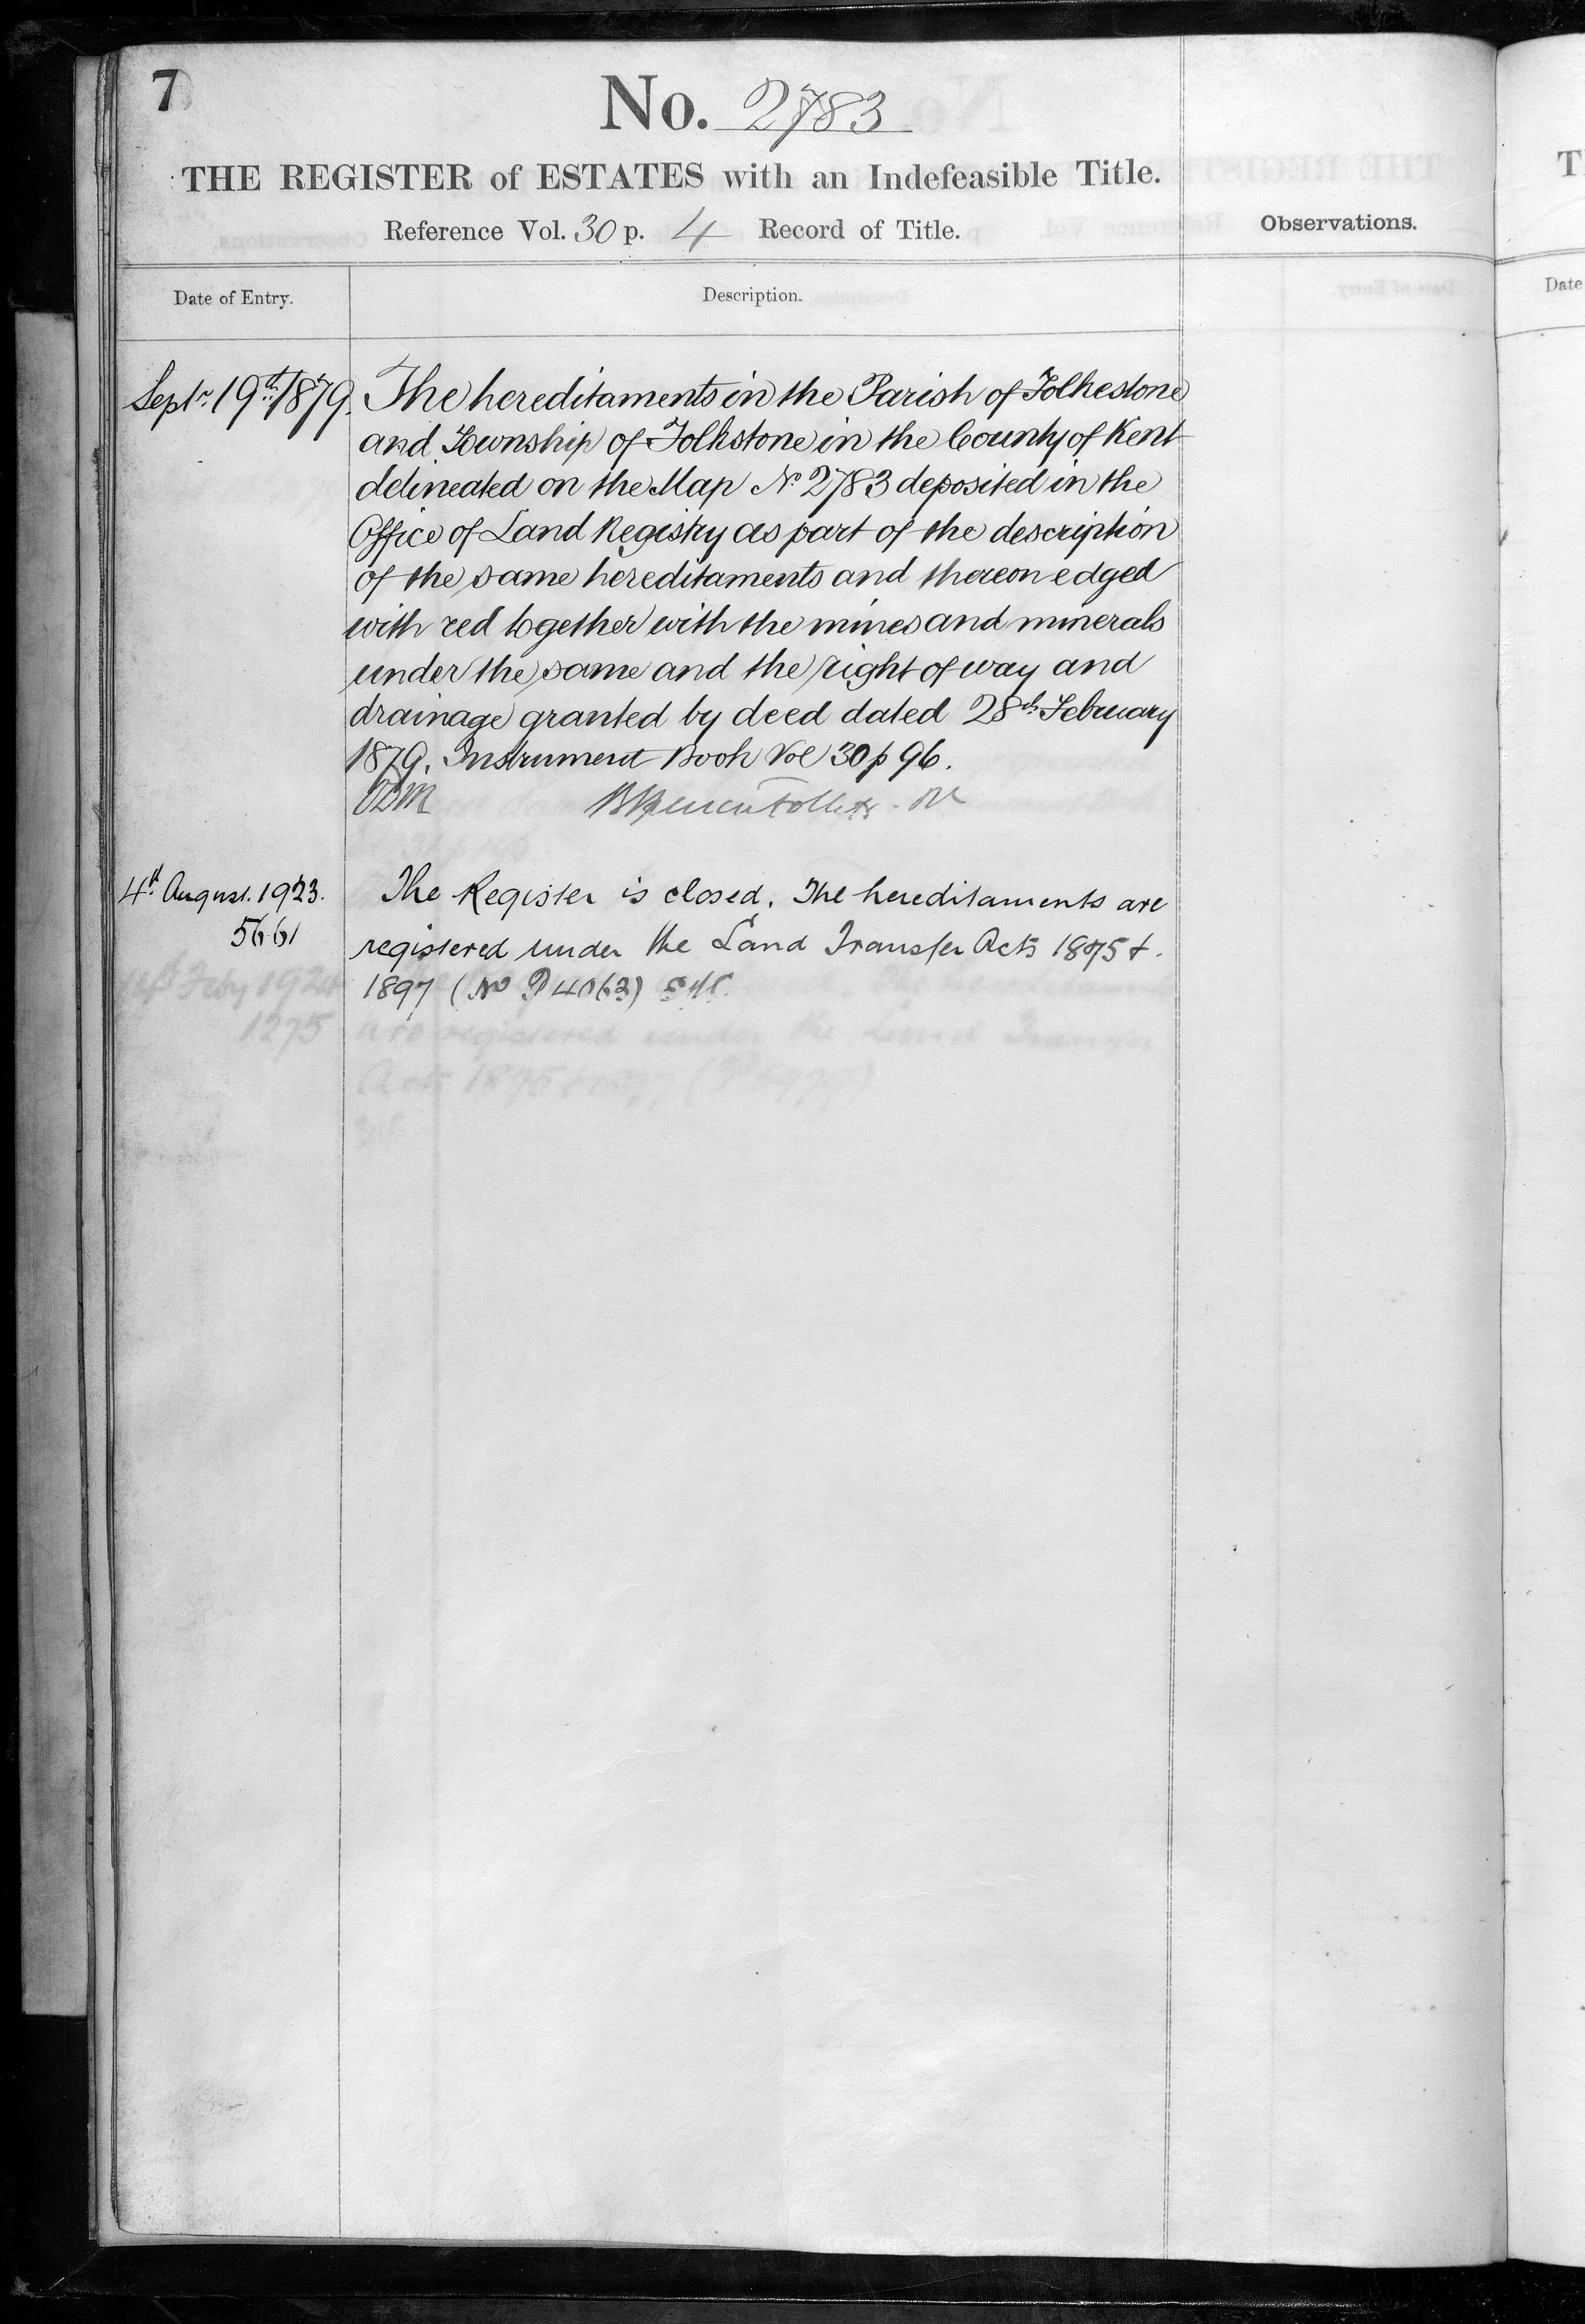 7
No. 2783
THE REGISTER of ESTATES with an Indefeasible Title.
Reference Vol. 30 p. 4 Record of Title.
Observations.
Date of Entry.
Description.
Septr. 19th 1879. The hereditaments in the Parish of Folkestone
and Township of Folkstone in the County of Kent
delineated on the Map No 2783 deposited in the
Office of Land Registry as part of the description
of the same hereditaments and thereon edged
with red together with the mines and minerals
under the same and the right of way and
drainage granted by deed dated 28th February
1879. Instrument Book Vol 30 p 96.
4th August. 1923. The Register is closed. The hereditaments are
5661 registered under the Land Transfer Acts 1875 &
1897 (No P 4063)
Feby 1924
1275 are registered under the Land Transfer
Acts 1875
T
Date